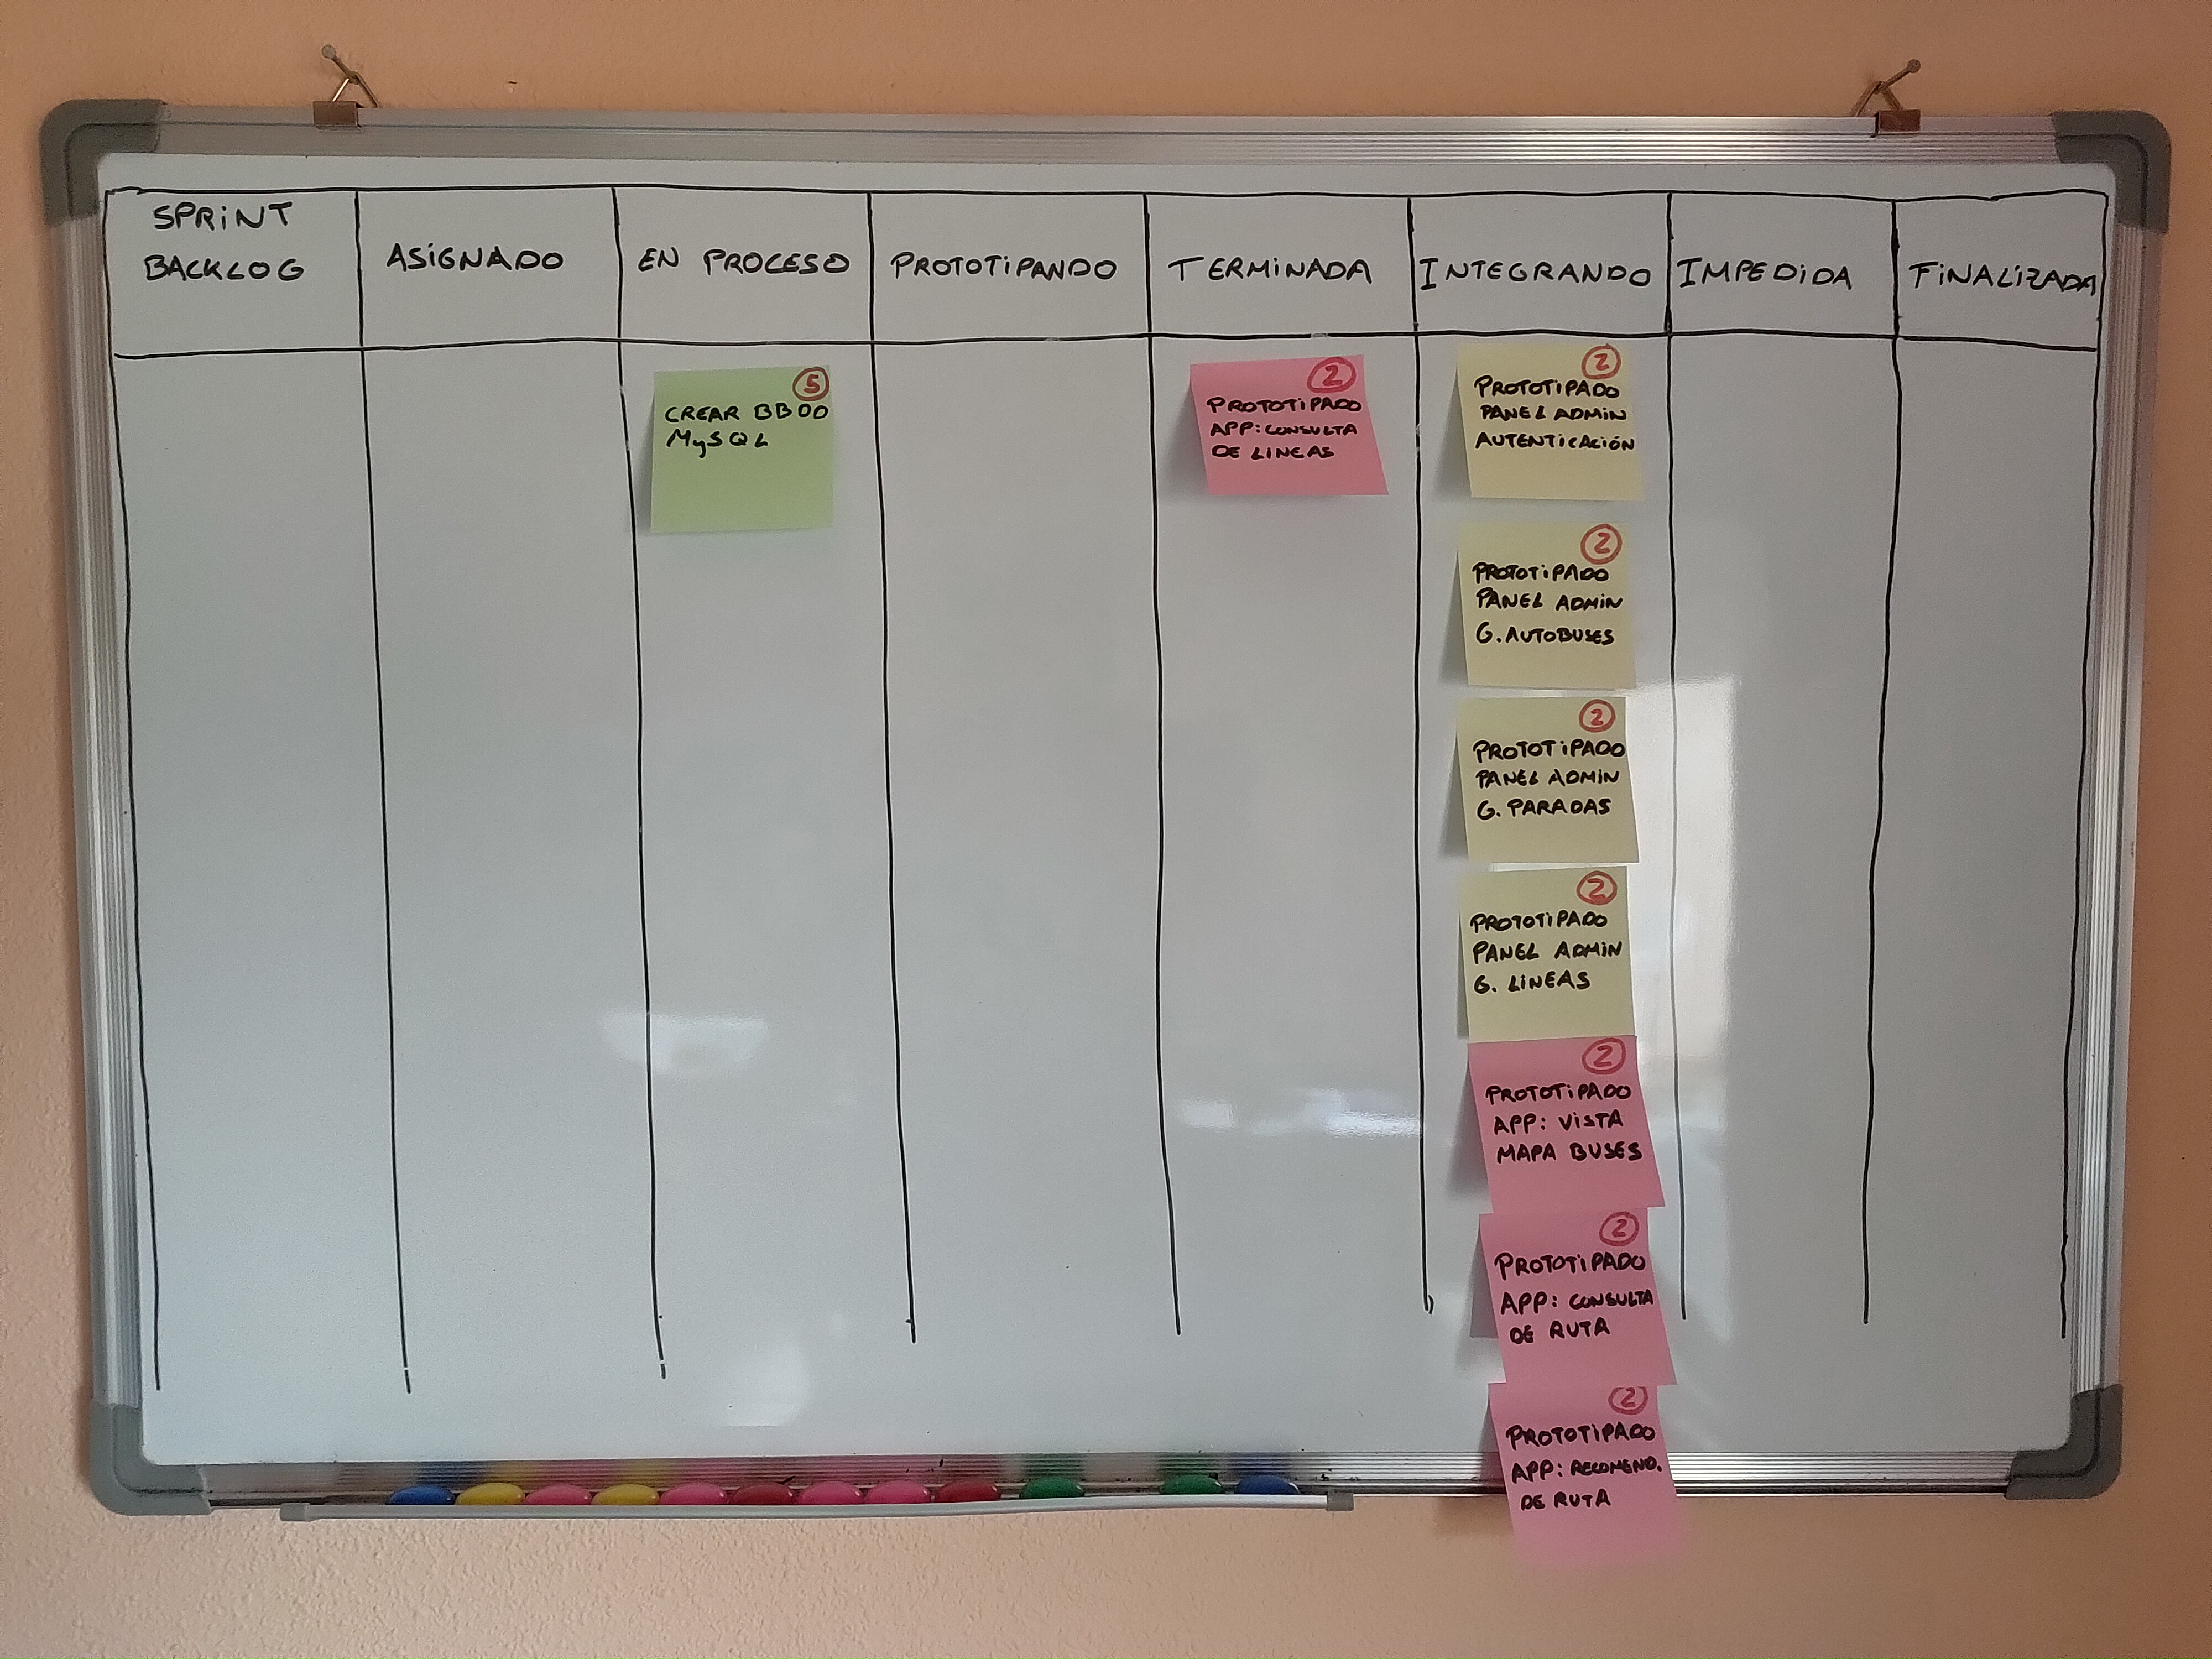 SPRINT
BACKLOG
ASIGNADO
EN PROCESO
PROTOTIPANDO
TERMINADA
INTEGRANDO
IMPEDIDA
FINALIZADA
5
CREAR BBDD
MySQL
2
PROTOTIPADO
APP: CONSULTA
DE LINEAS
2
PROTOTIPADO
PANEL ADMIN
AUTENTICACIÓN
2
PROTOTIPADO
PANEL ADMIN
G. AUTOBUSES
2
PROTOTIPADO
PANEL ADMIN
G. PARADAS
2
PROTOTIPADO
PANEL ADMIN
G. LINEAS
2
PROTOTIPADO
APP: VISTA
MAPA BUSES
2
PROTOTIPADO
APP: CONSULTA
DE RUTA
2
PROTOTIPADO
APP: RECOMEND.
DE RUTA